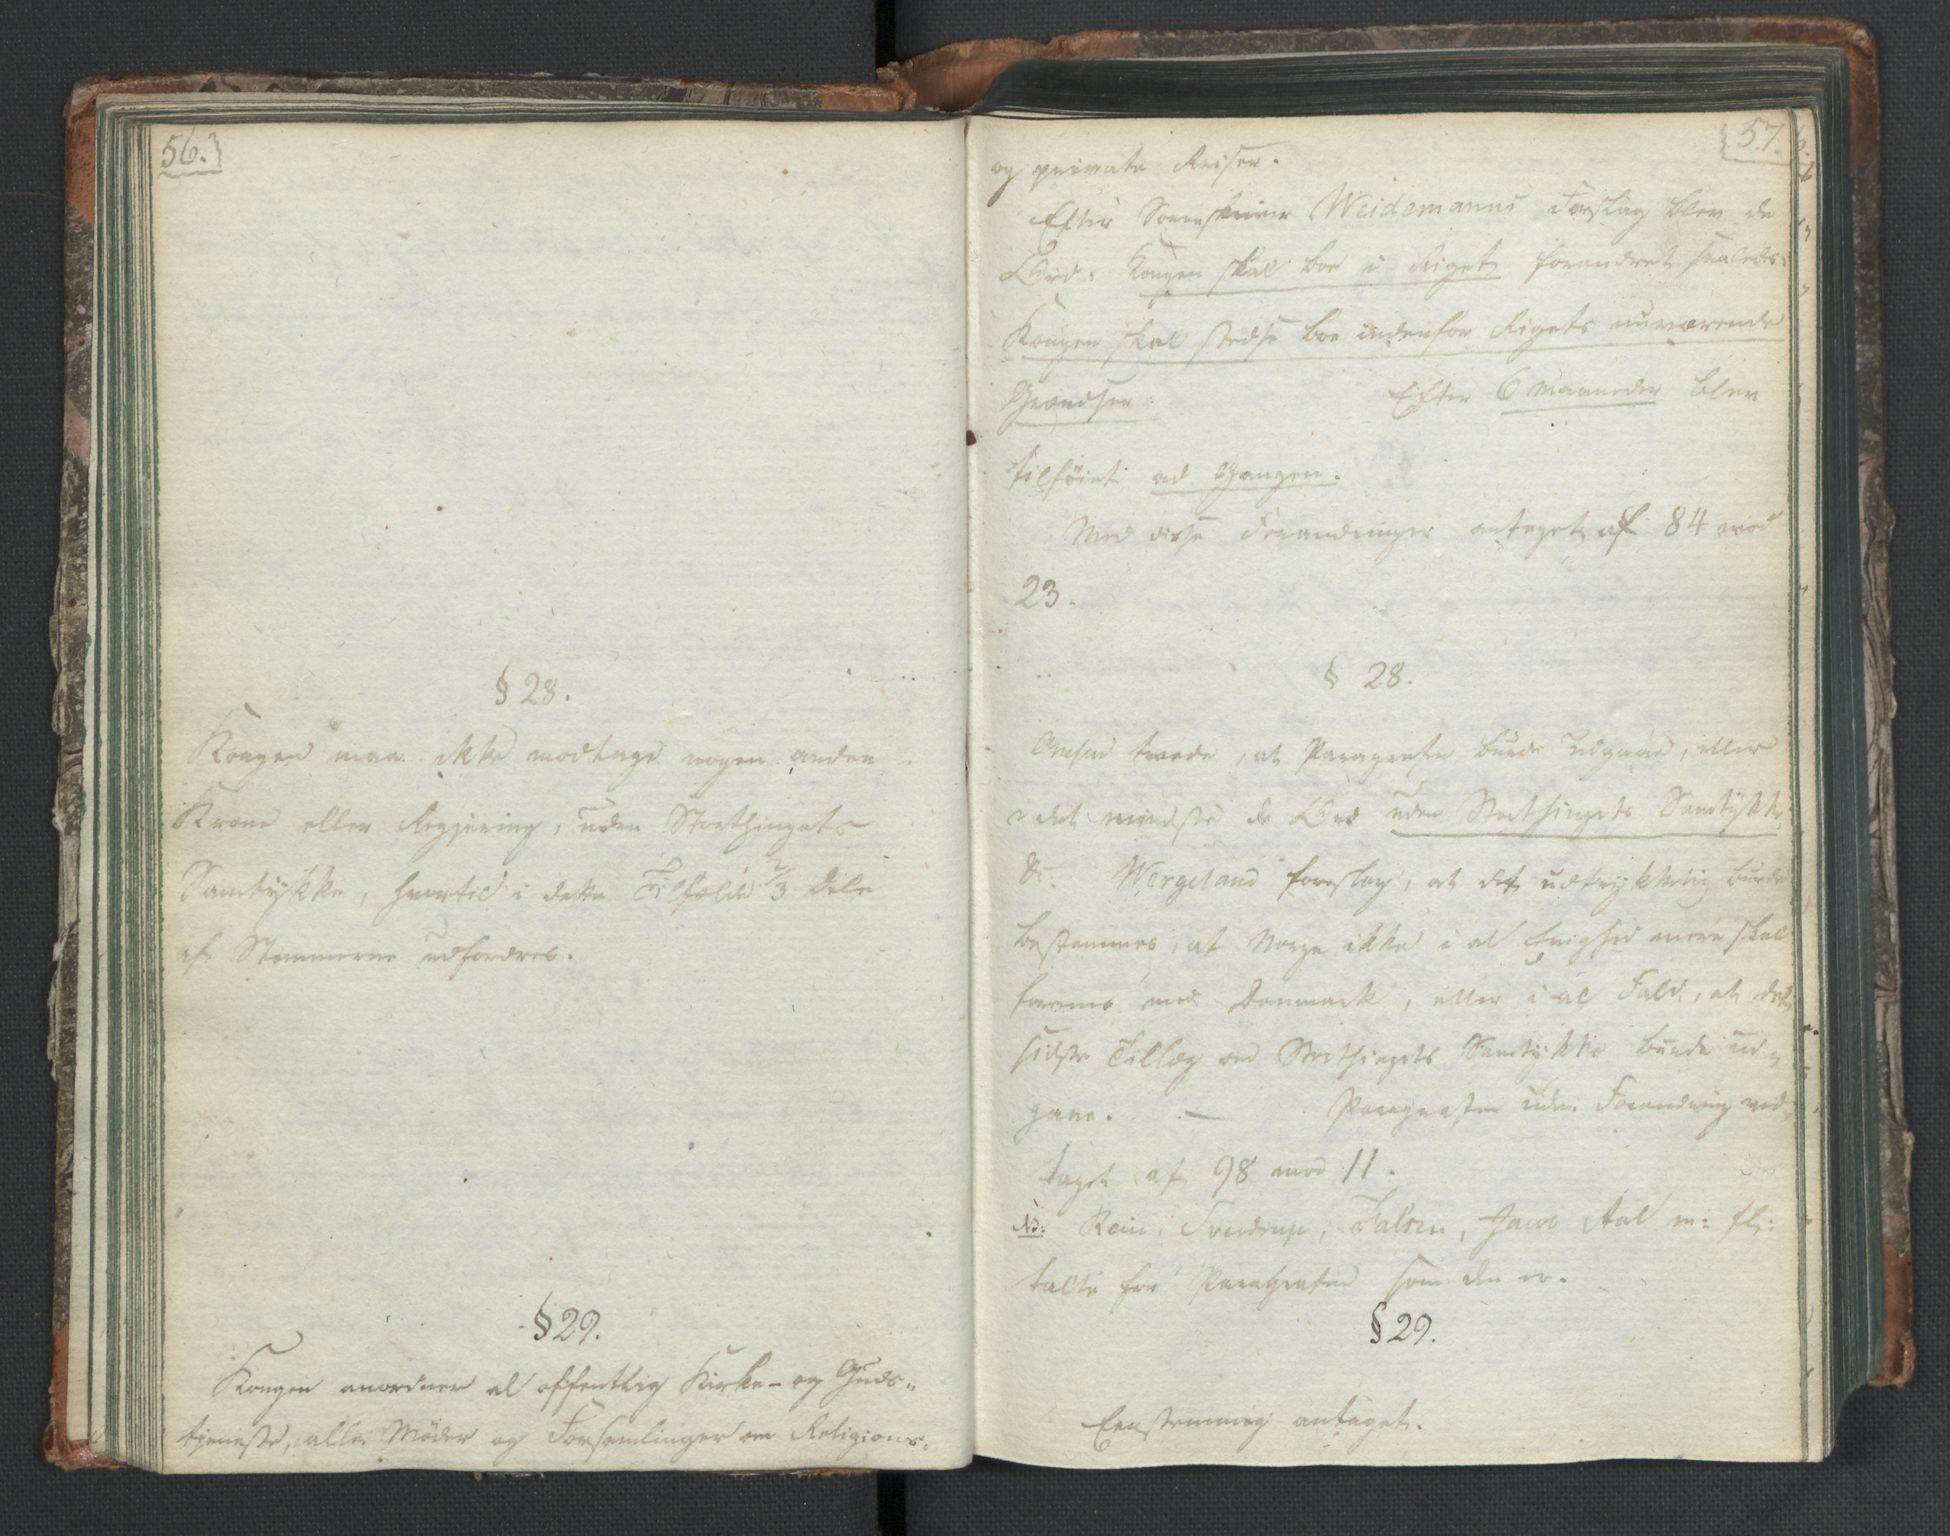 56.
§ 28.
Kongen maa ikke modtage nogen anden
Krone eller Regjering, uden Storthingets
Samtykke, hvortil i dette Tilfælde 2/3 Dele
af Stemmerne udfordres.
§ 29.
Kongen anordner al offentlig Kirke- og Guds-
tjeneste, alle Møder og Forsamlinger om Religions-
57.
og private Reiser.
Efter Sorenskriver Weidemanns Forslag blev de
Ord: Kongen skal boe i Riget forandret saaledes:
Kongen skal stedse boe indenfor Rigets nuværende
Grændser. Efter 6 Maaneder blev
tilføiet ad Gangen.
Med disse Forandringer antaget af 84 mod
23.
§ 28.
troede, at Paragrafen burde udgaae, eller
i det mindste de Ord uden Storthingets Samtykke
Wergeland foreslog, at det udtrykkelig burde
bestemmes, at Norge ikke i al Evighed mere skal
forenes med Danmark, eller i al Fald, at det
sidste Tillæg om Storthingets Samtykke burde ud-
gaae. — Paragrafen uden Forandring ved-
taget af 98 mod 11.
NB: Rein, Sverdrup, Falsen, Jacob Aal m: fl:
talte for Paragrafen som den er.
§ 29.
Eenstemmig antaget.